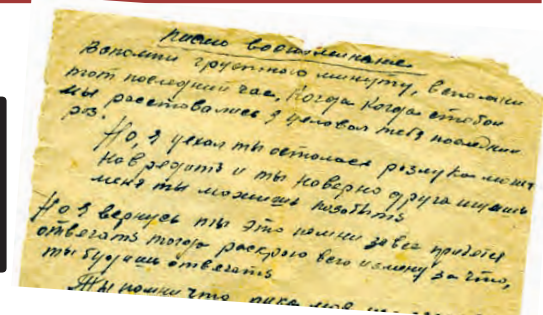 письмо воспоминание
Вспомни грустного минуту, вспомни
тот последний час, Когда Когда стобой
мы расставались я целовал тебя последний
рос.
Но, я уехал ты осталася розлука может
навредить и ты наверно друга ищишь
меня ты можишь позобыть
Но я вернусь ты это помни за все придется
отвечать тогда раскрою всю измену за что,
ты будишь отвечать
Ты помни что пока